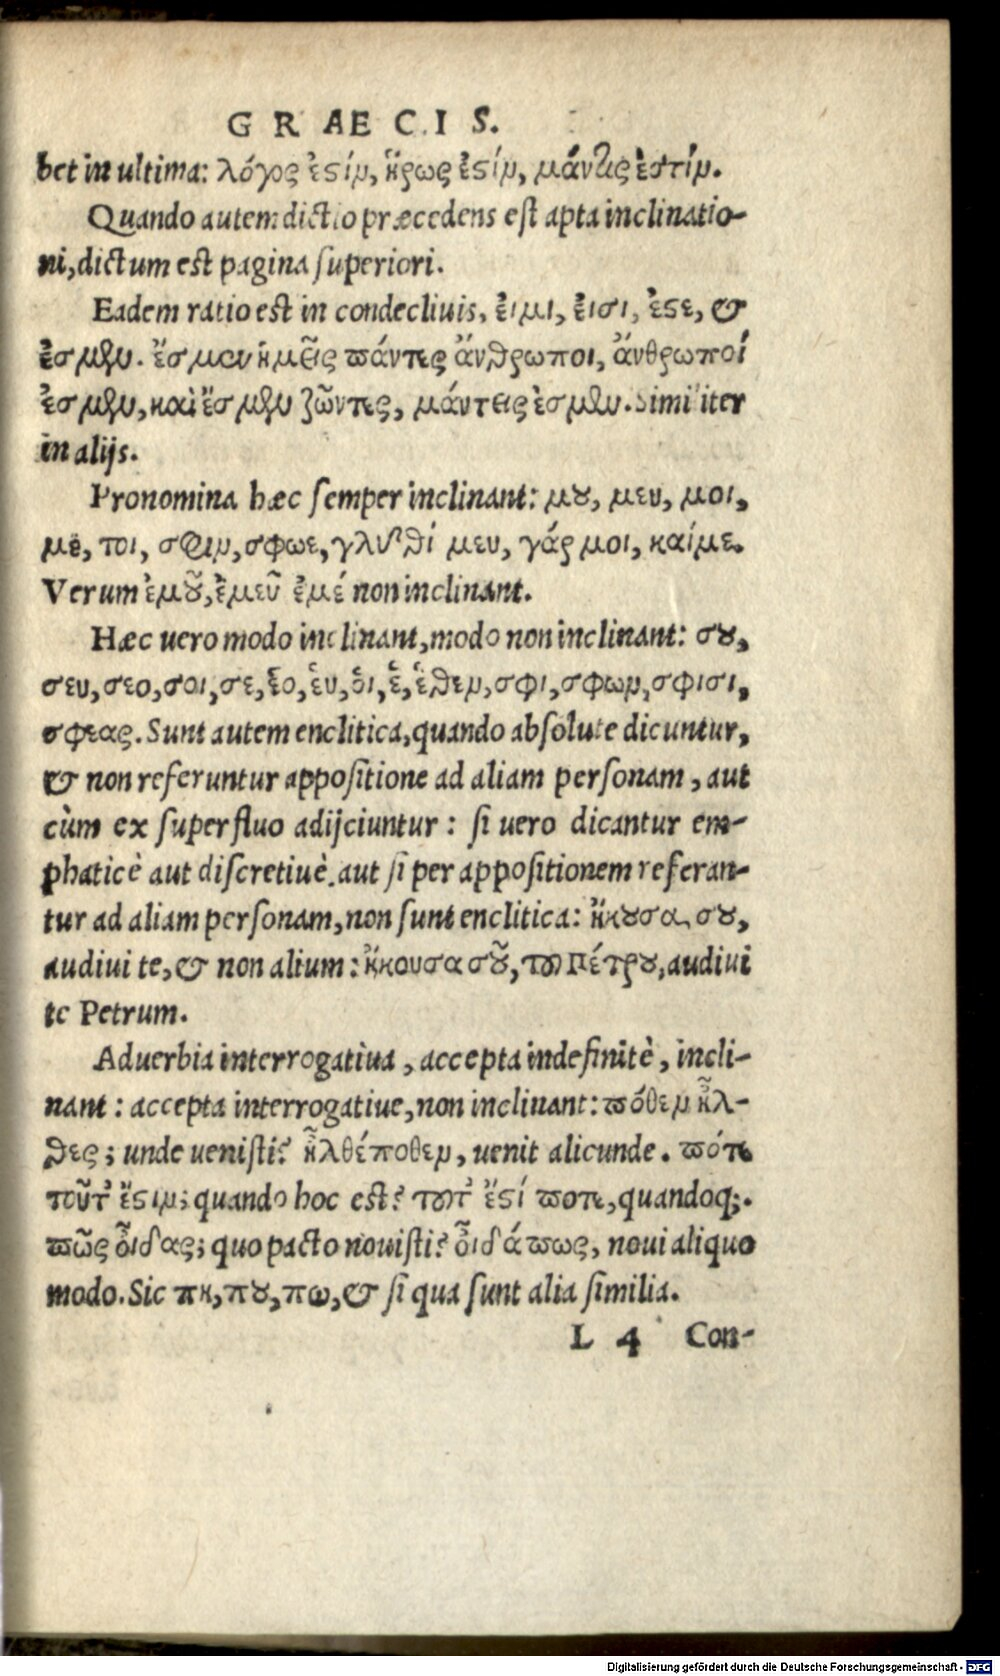 GRAECIS.
bet in ultima: λόγος ἐςίν, ἥρως ἐςίν, μάντις ἐστίν.
Quando autem dictio præcedens est apta inclinatio-
ni, dictum est pagina superiori.
Eadem ratio est in condecliuis, ἐιμι, ἐισι, ἐςε, &
ἐσμὲν. ἔσμεν ἡμεῖς πάντες ἄνθρωποι, ἄνθρωποί
ἐσμεν, καὶ ἔσμεν ζῶντες, μάντεις ἐσμεν. Similiter
in alijs.
Pronomina hæc semper inclinant: μου, μευ, μοι,
με, τοι, σφιν, σφωε, γλυθί μευ, γάρ μοι, καίμε.
Verum ἐμοῦ, ἐμεῦ ἐμέ non inclinant.
Hæc uero modo inclinant, modo non inclinant: σου,
σευ, σεο, σοι, σε, ἑο, ἑυ, ὁι, ἑ, ἑθεν, σφι, σφων, σφισι,
σφεας. Sunt autem enclitica, quando absolute dicuntur,
& non referuntur appositione ad aliam personam, aut
cùm ex superfluo adijciuntur: si uero dicantur em-
phaticè aut discretiuè. aut si per appositionem referan-
tur ad aliam personam, non sunt enclitica: ἤκουσα σου,
audiui te, & non alium: ἤκουσα σοῦ, του πέτρου, audiui
te Petrum.
Aduerbia interrogatiua, accepta indefinitè, incli-
nant: accepta interrogatiue, non inclinant: πόθεν ἦλ-
θες; unde uenisti? ἦλθέ ποθεν, uenit alicunde. πότε
τοῦτ' ἔςιν; quando hoc est? τουτ' ἔςί ποτε, quandoq;.
πῶς οἶδας; quo pacto nouisti? οἶδά πως, noui aliquo
modo. Sic πη, που, πω, & si qua sunt alia similia.
L 4 Con-
Digitalisierung gefördert durch die Deutsche Forschungsgemeinschaft - DFG